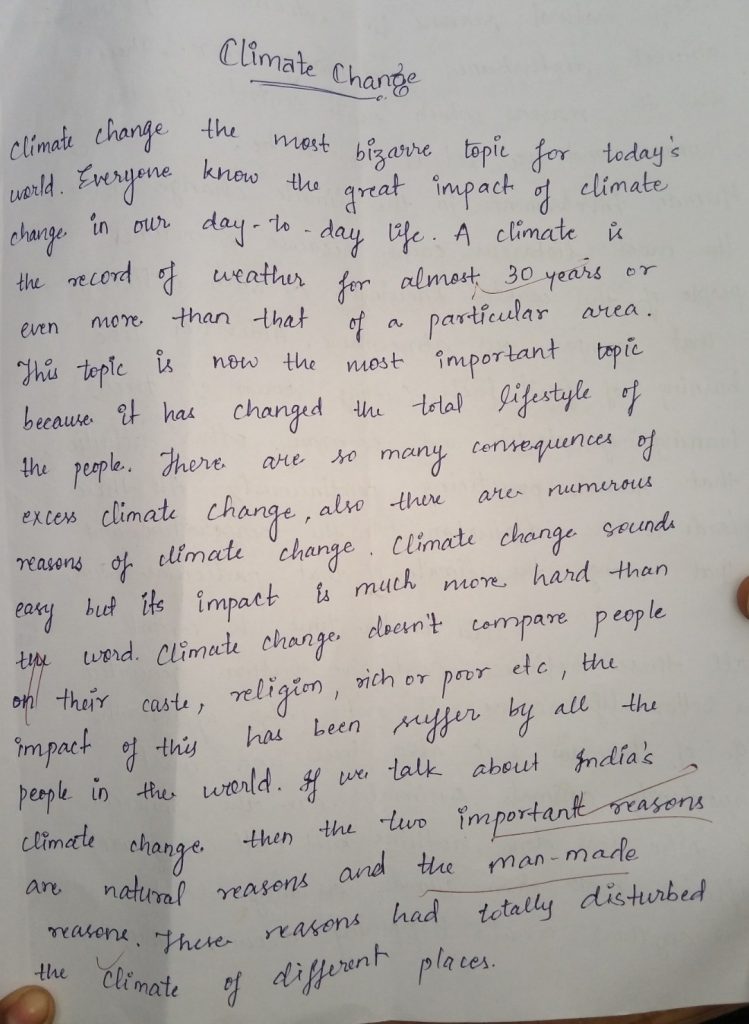 Climate Change
Climate change the most bizarre topic for today's
world. Everyone know the great impact of climate
change in our day-to-day life. A climate is
the record of weather for almost 30 years or
even more than that of a particular area.
This topic is now the most important topic
because it has changed the total lifestyle of
the people. There are so many consequences of
excess climate change, also there are numerous
reasons of climate change. Climate change sounds
easy but its impact is much more hard than
the word. Climate change doesn't compare people
on their caste, religion, rich or poor etc, the
impact of this has been suffer by all the
people in the world. If we talk about India's
climate change then the two important reasons
are natural reasons and the man-made
reasons. These reasons had totally disturbed
the climate of different places.